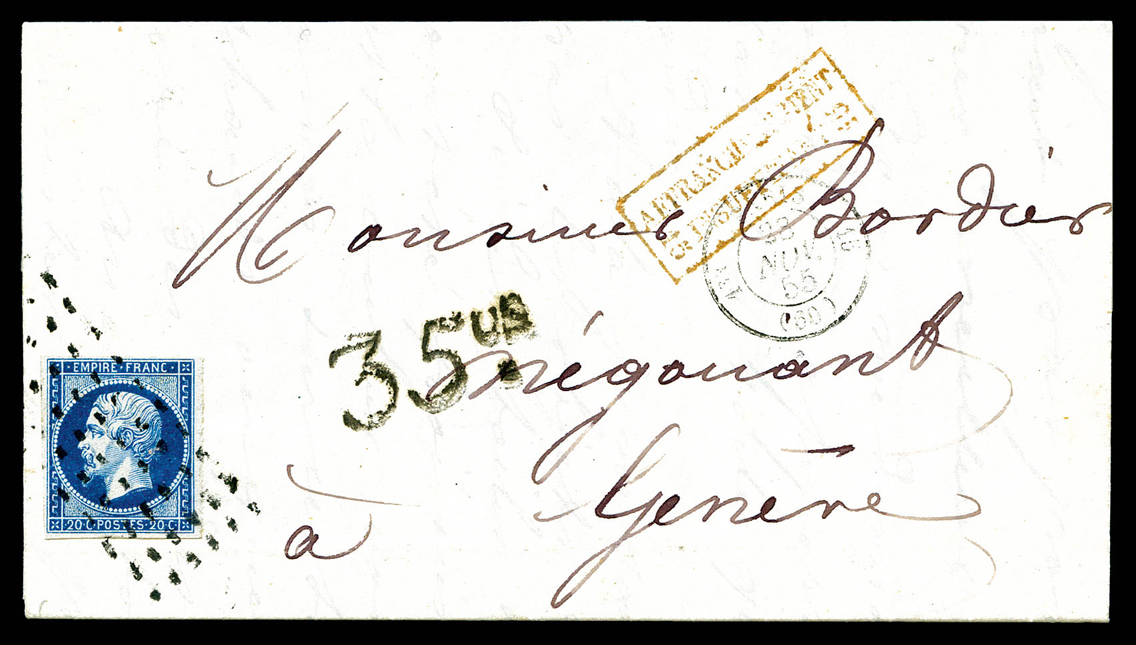 AFFRANCHISSEMENT
INSUFFISANT
Monsieur Bordier
NOV.
55
(60)
35
négociant
EMPIRE · FRANC ·
20 C POSTES · 20 C
à Genève